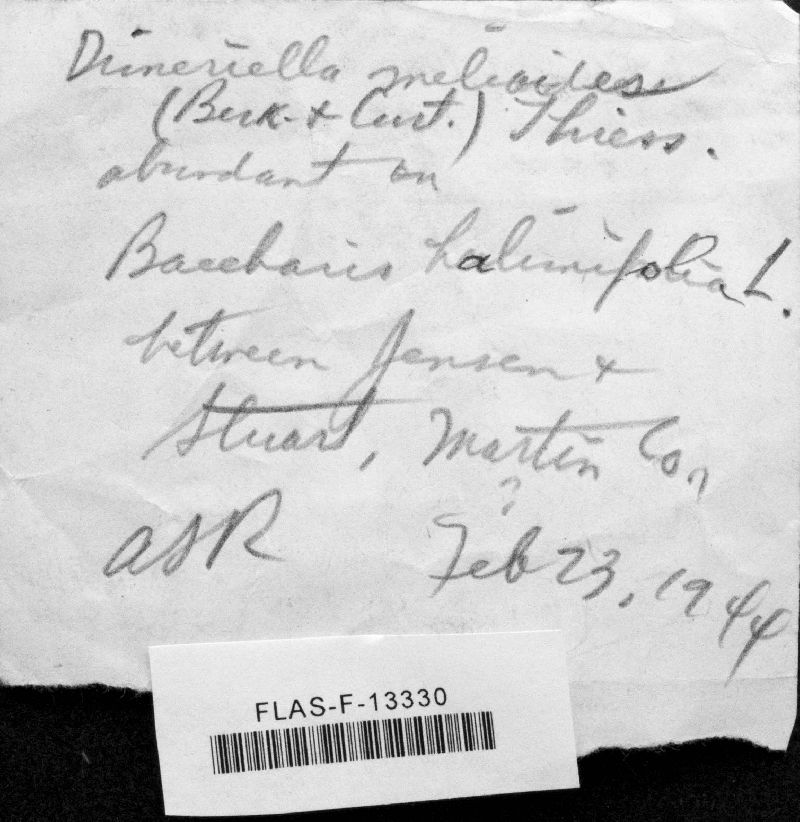 Dimeriella melioides
(Berk. & Curt.) Theiss.
abundant on
Baccharis halimifolia L.
between Jensen &
Stuart, Martin Co.,
?
ASR Feb 23, 1944
FLAS-F-13330